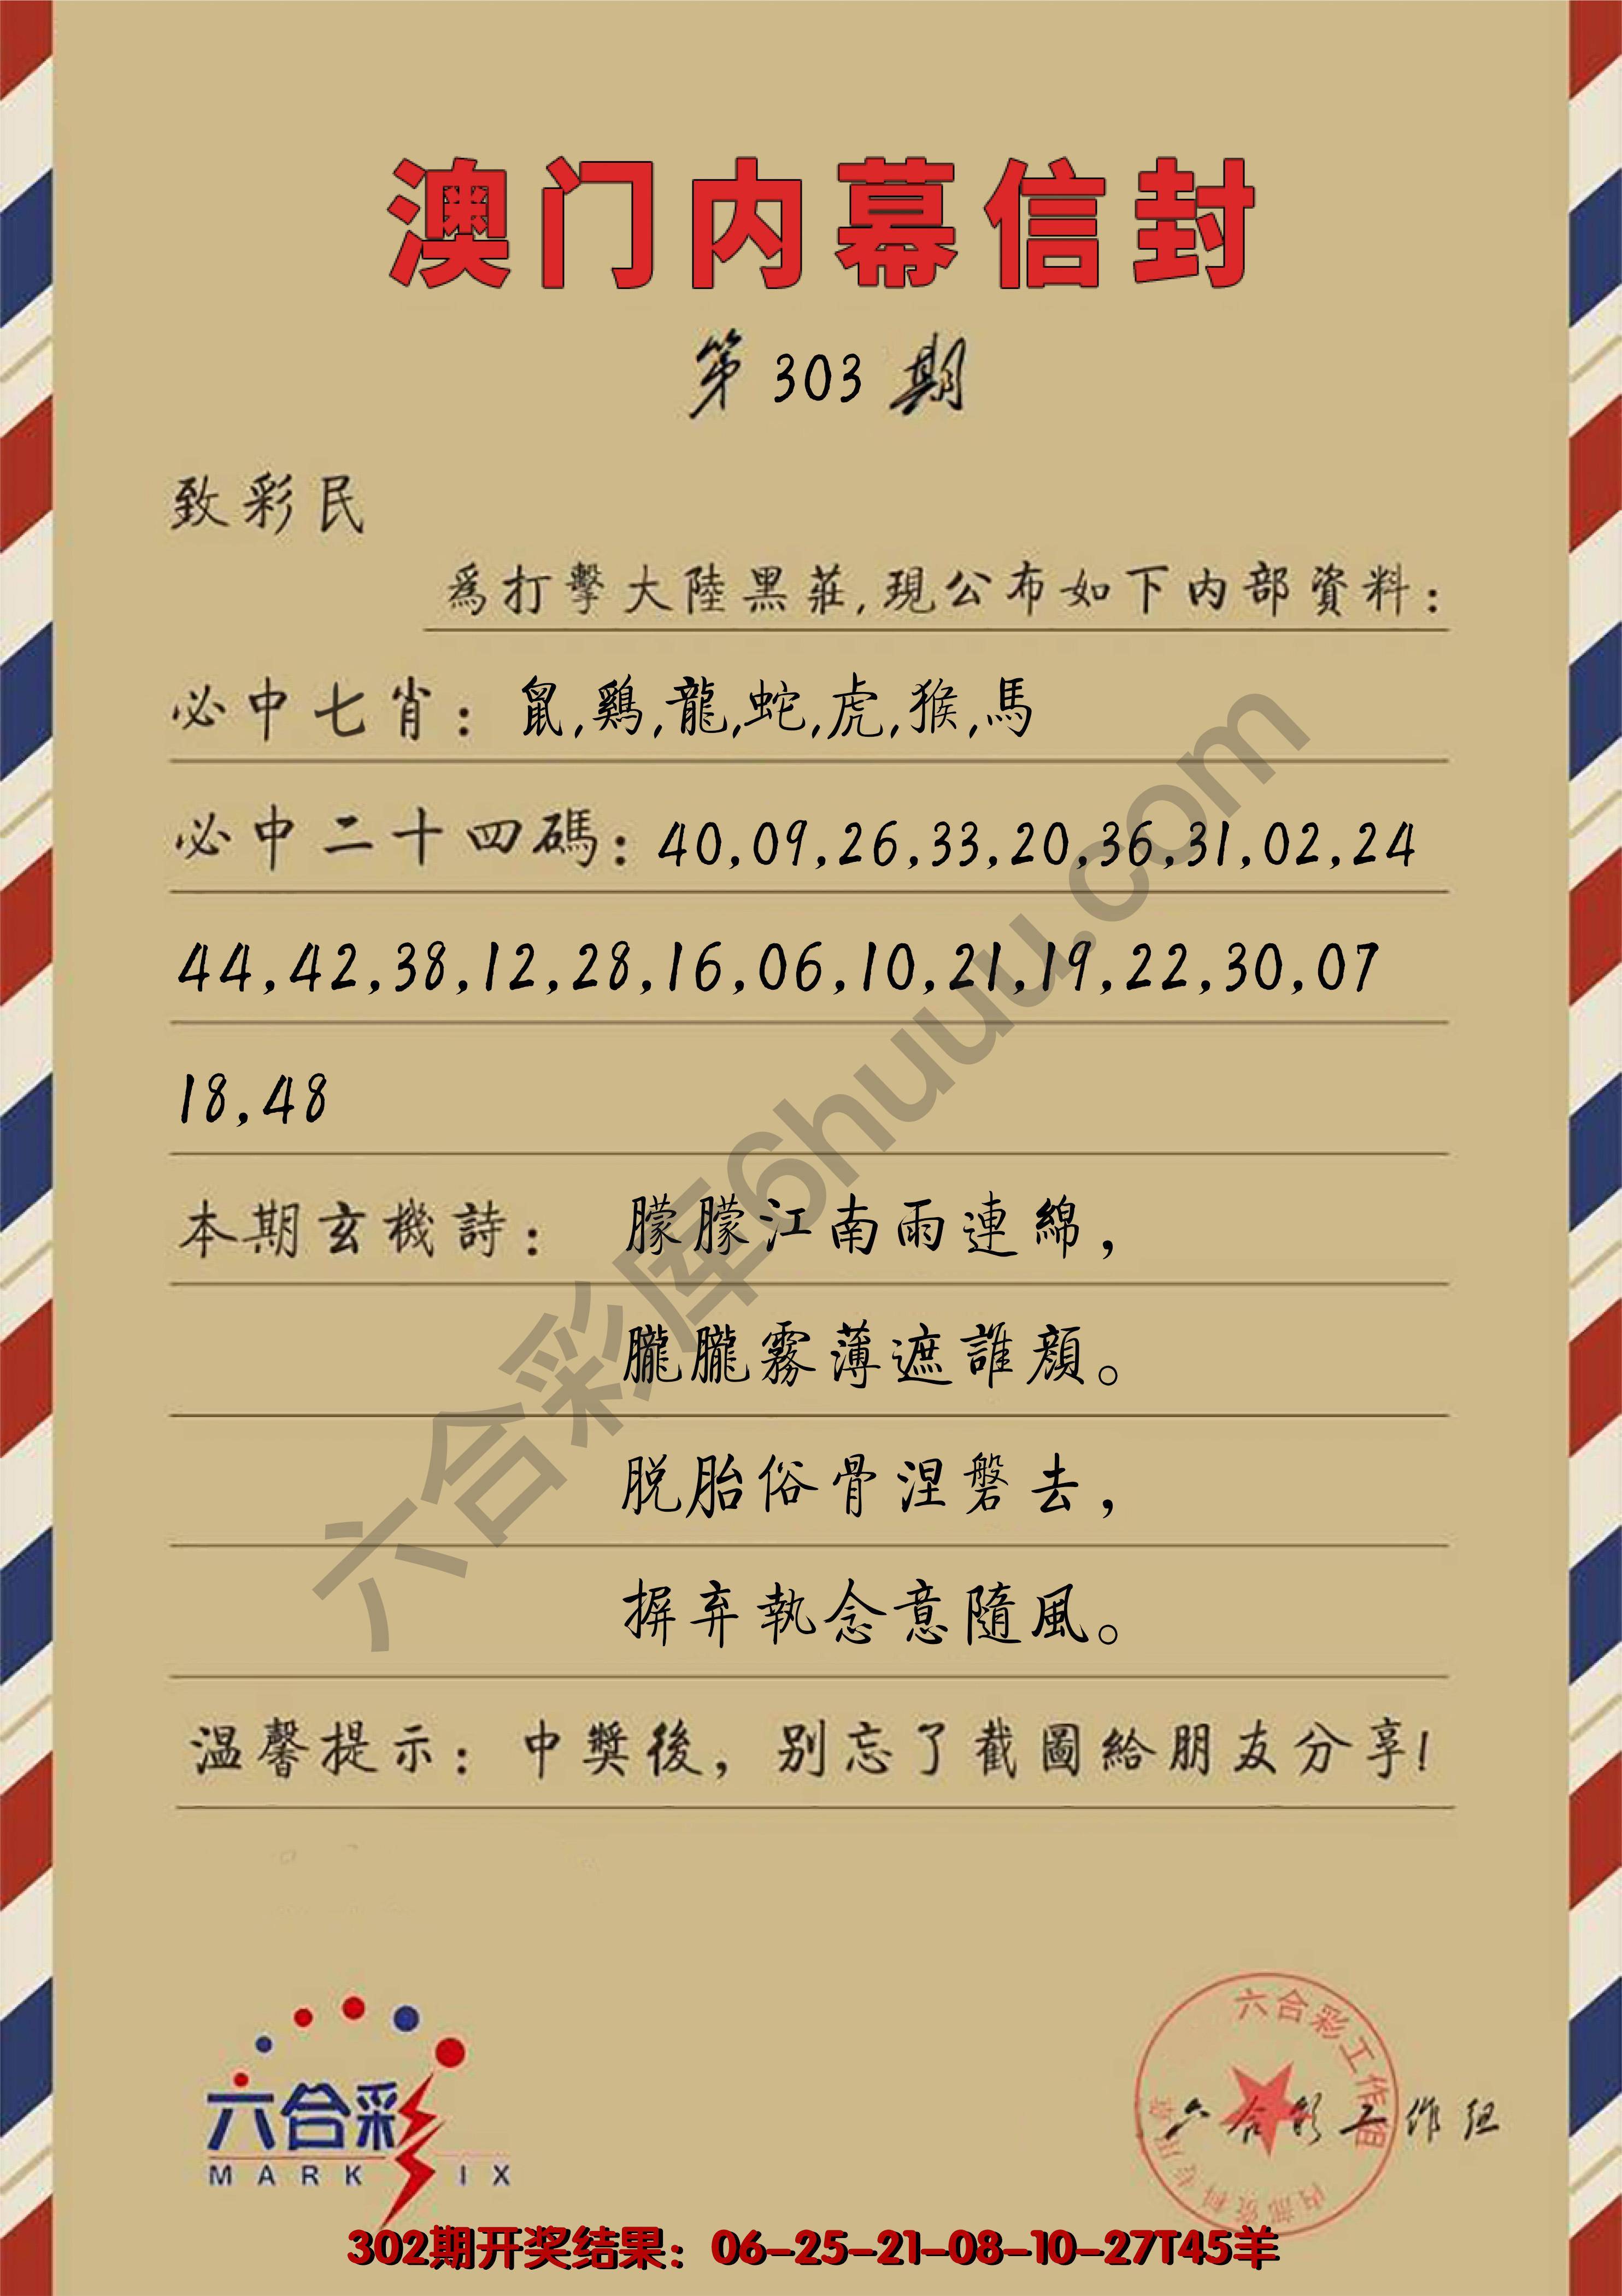 澳门内幕信封
第303期
致彩民
爲打擊大陸黑莊,現公布如下内部資料:
必中七肖: 鼠,鷄,龍,蛇,虎,猴,馬
必中二十四碼: 40,09,26,33,20,36,31,02,24
44,42,38,12,28,16,06,10,21,19,22,30,07
18,48
本期玄機詩: 朦朦江南雨連綿,
朧朧霧薄遮誰顔。
脱胎俗骨涅磐去,
摒弃執念意隨風。
温馨提示: 中獎後,别忘了截圖給朋友分享!
六合彩库6huuu.com
六合彩
MARK IX
六合彩工作组
内部资料专用章
六合彩工作组
302期开奖结果: 06-25-21-08-10-27T45羊